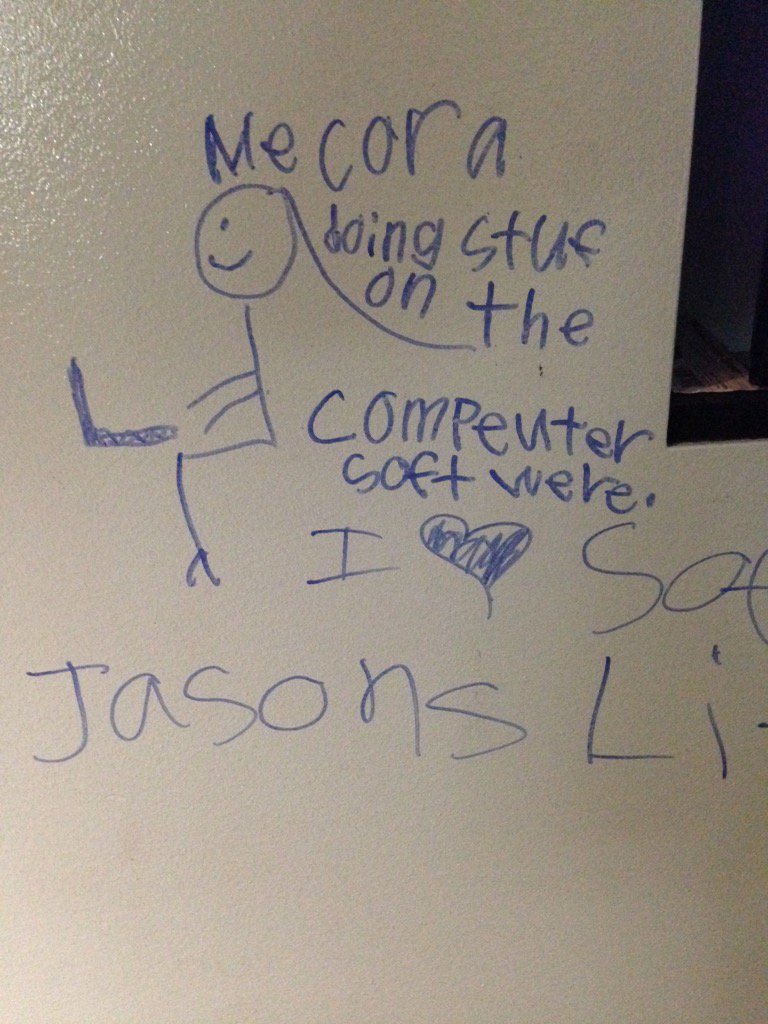 Me cora
doing stuf
on the
compeuter
soft were.
I ♥
Jasons